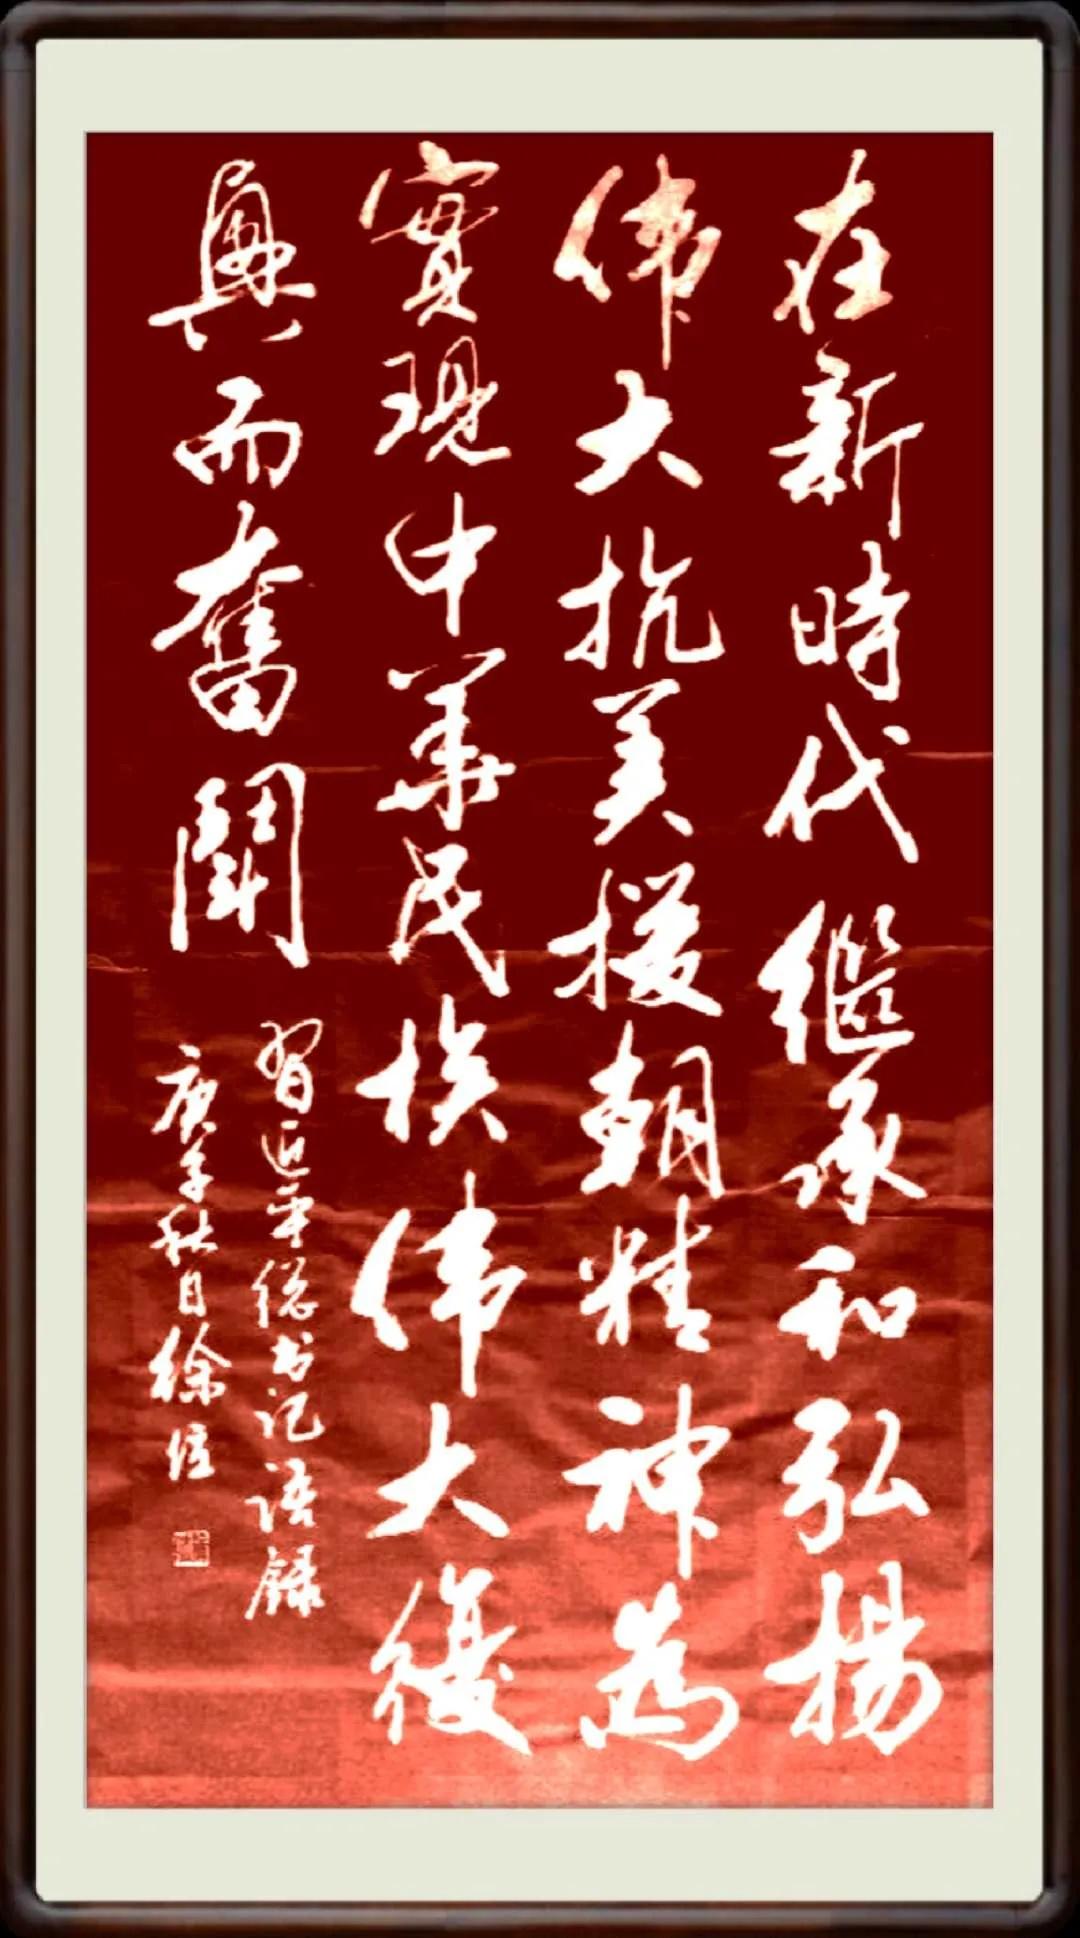 在新時代繼承和弘揚
伟大抗美援朝精神為
實現中華民族伟大復
興而奮鬭
習近平總书记语録
庚子秋日徐